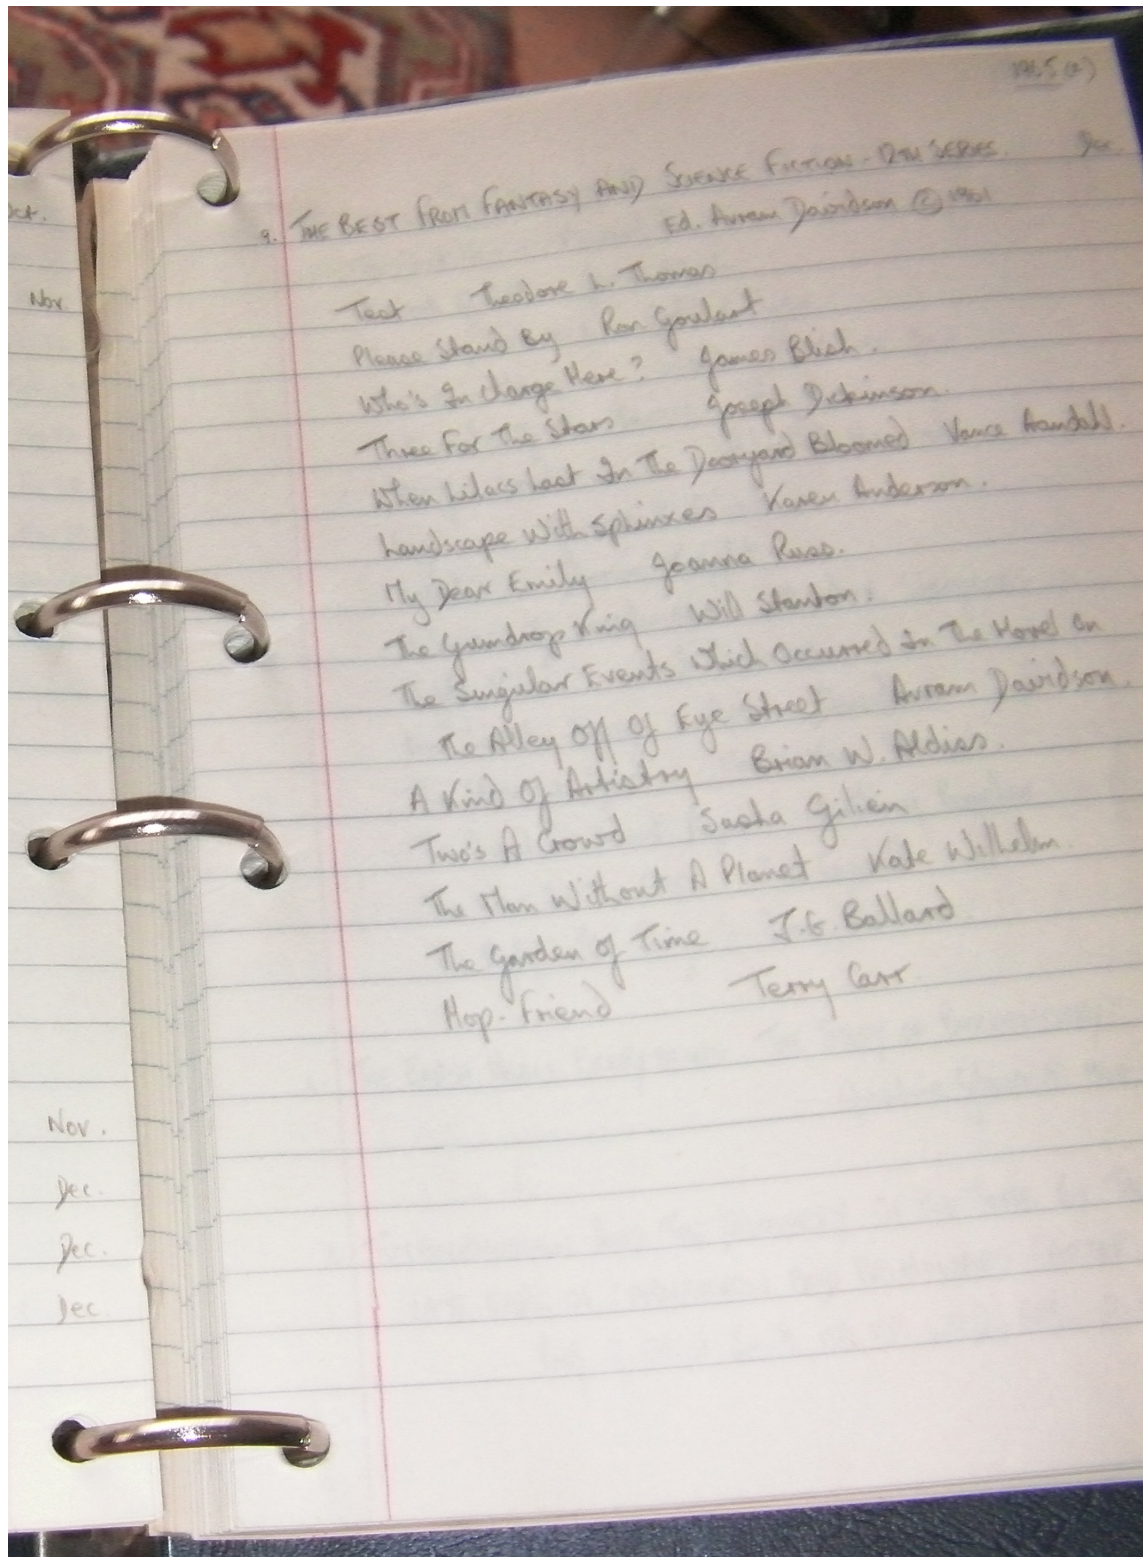 1965 (2)
Dec.
9. THE BEST FROM FANTASY AND SCIENCE FICTION - 12TH SERIES.
Ed. Avram Davidson © 1961
Test Theodore L. Thomas
Please Stand By Ron Goulart
Who's In Charge Here? James Blish.
Three For The Stars Joseph Dickinson.
When Lilacs Last In The Dooryard Bloomed Vance Aandahl.
Landscape With Sphinxes Karen Anderson.
My Dear Emily Joanna Russ.
The Gumdrop King Will Stanton.
The Singular Events Which Occurred In The Hovel On
The Alley Off Of Eye Street Avram Davidson.
A Kind Of Artistry Brian W. Aldiss.
Two's A Crowd Sasha Gilien
The Man Without A Planet Kate Wilhelm.
The Garden of Time J.G. Ballard
Hop-Friend Terry Carr.
Nov
Nov.
Dec.
Dec.
Dec.